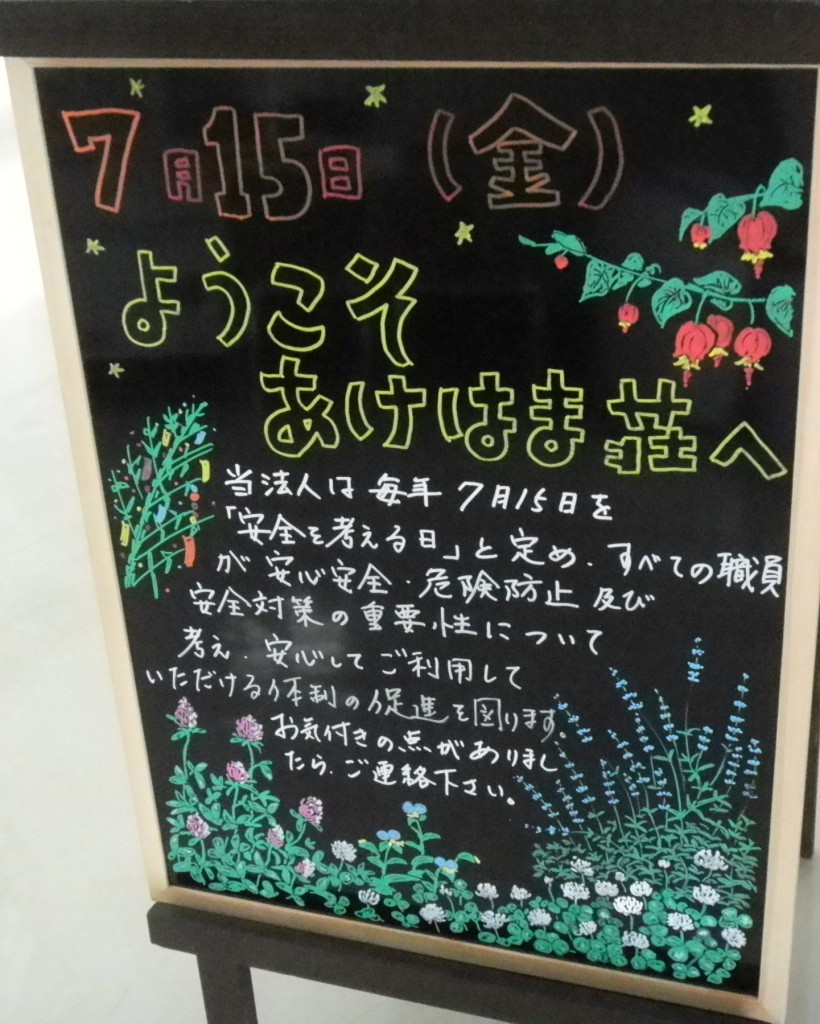 7月15日(金)
ようこそ
あけはま荘へ
当法人は毎年7月15日を
「安全を考える日」と定め.すべての職員
が安心安全・危険防止及び
安全対策の重要性について
考え.安心してご利用して
いただける体制の促進を図ります。
お気付きの点がありまし
たら.ご連絡下さい。